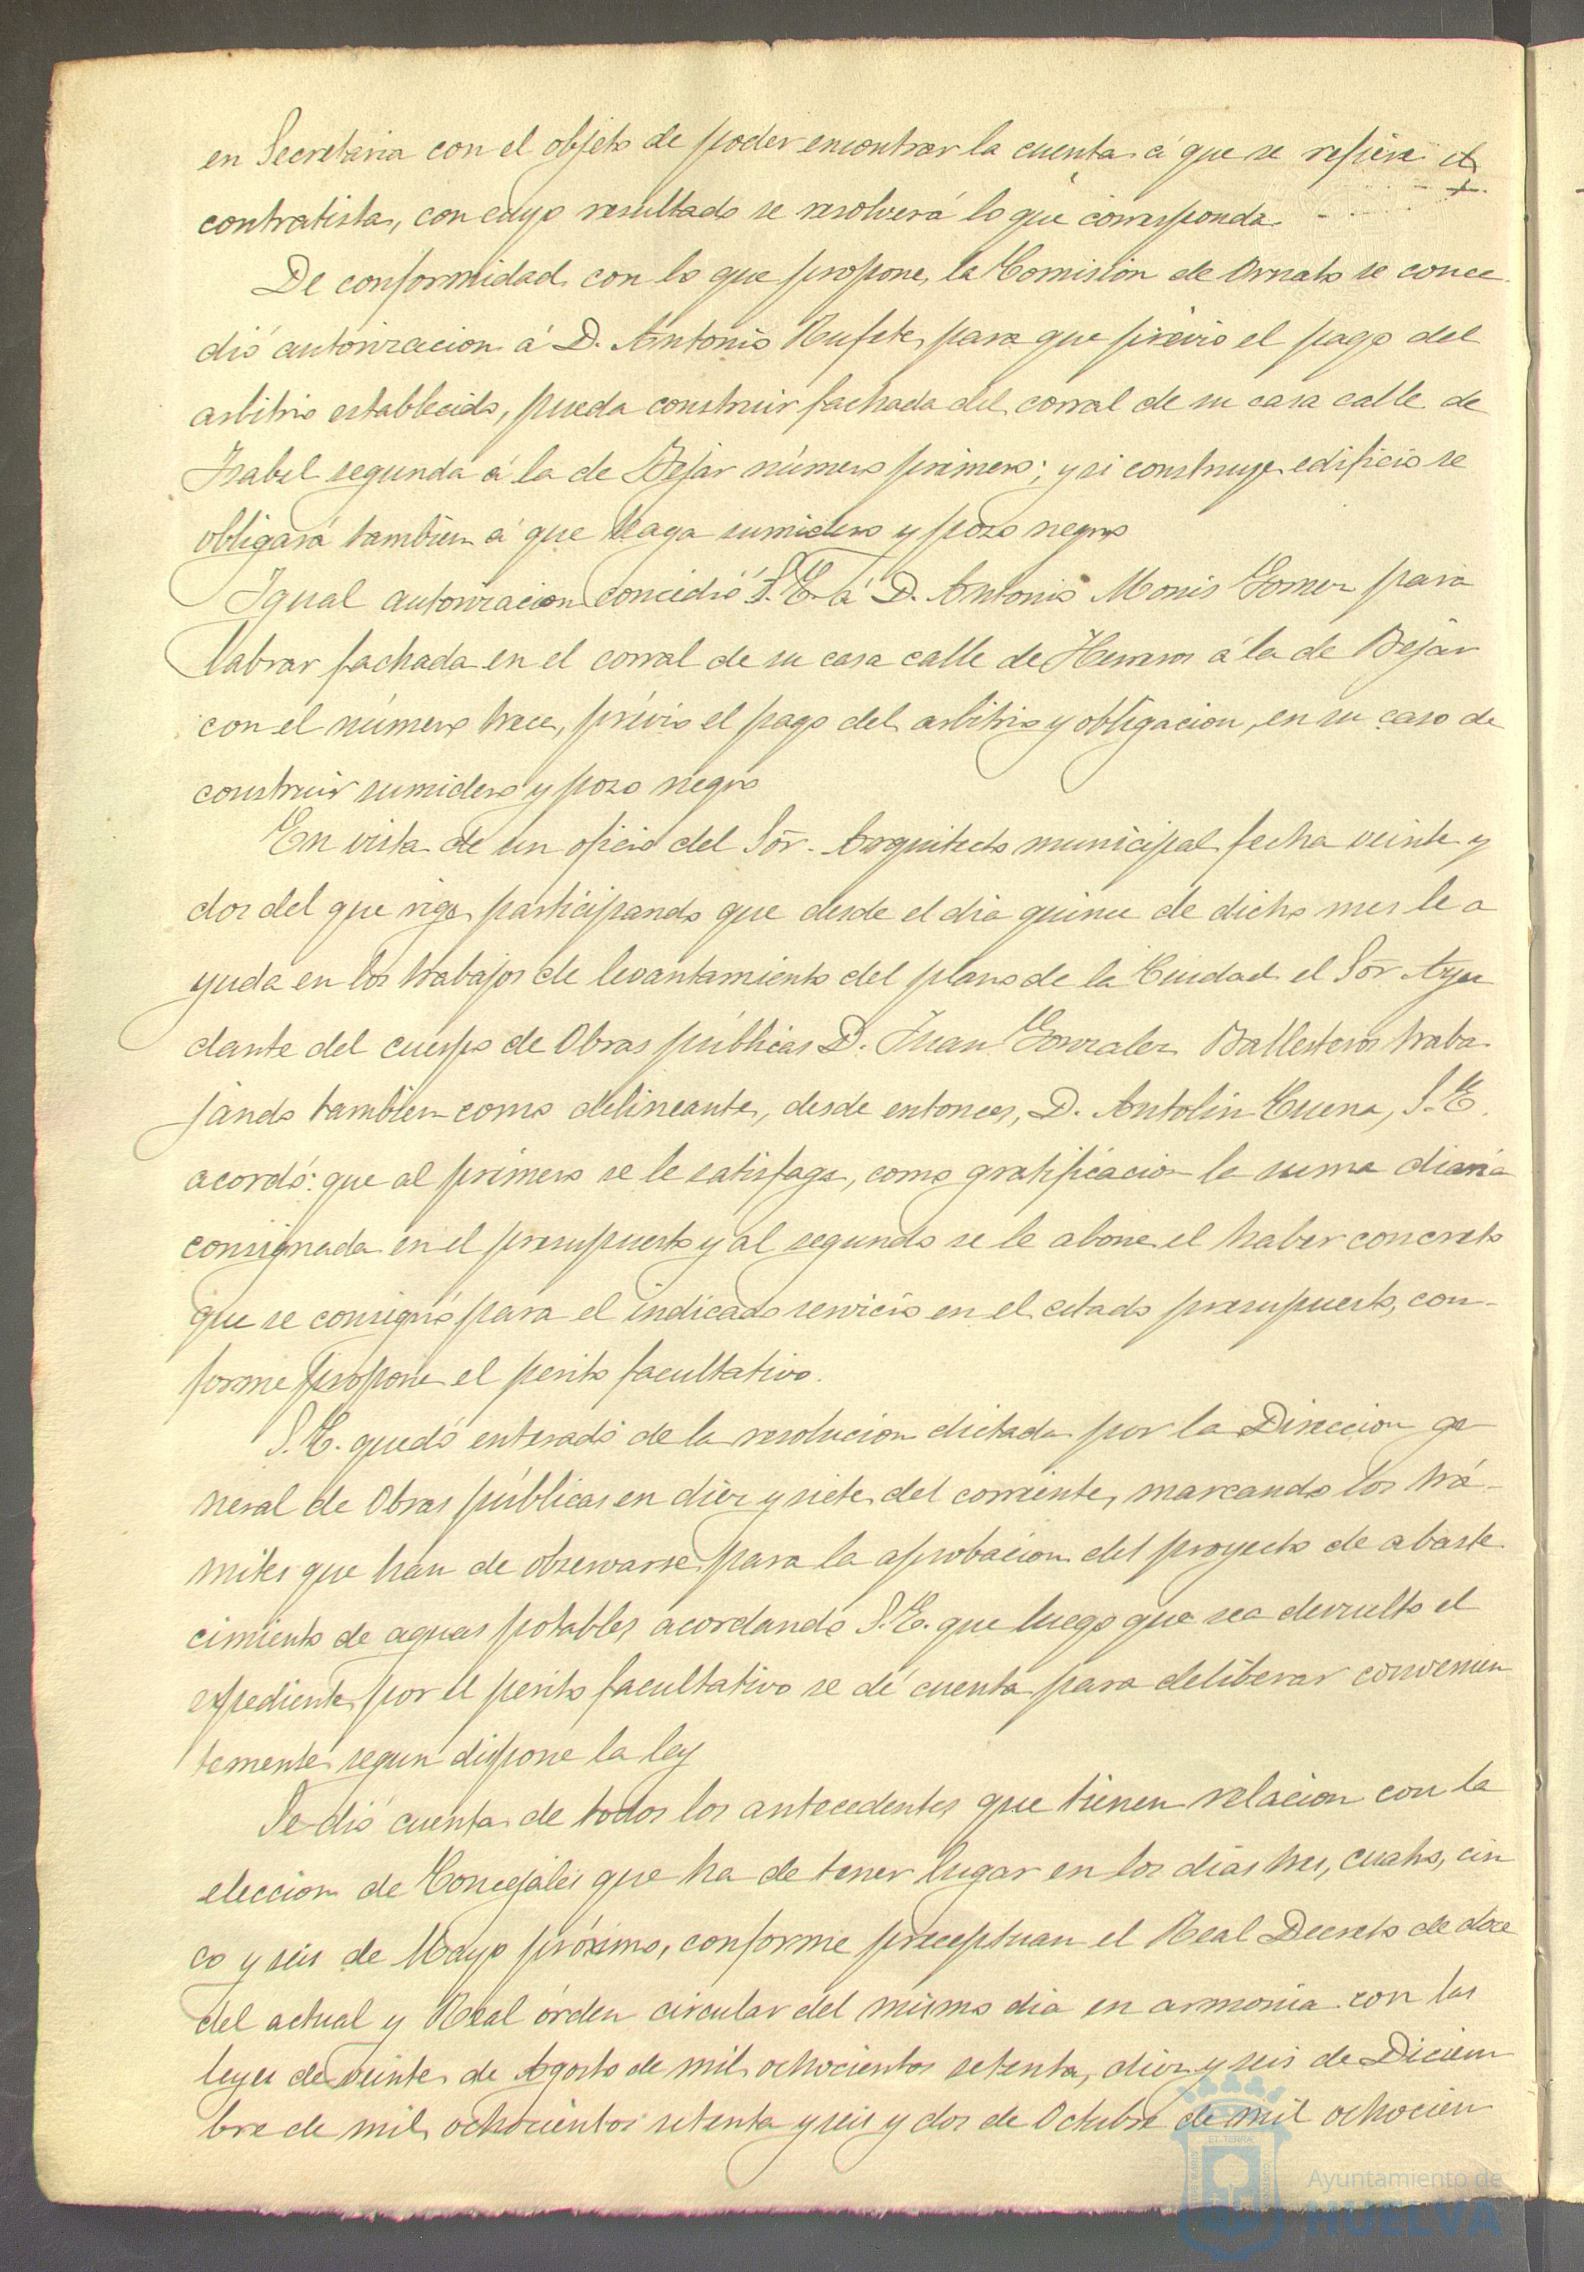 en Secretaria con el objeto de poder encontrar la cuenta á que se refiere el
contratista, con cuyo resultado se resolverá lo que corresponda.
De conformidad con lo que propone la Comision de Ornato se conce
dió autorizacion á D. Antonio Rufete, para que prévio el pago del
arbitrio establecido, pueda construir fachada del corral de su casa calle de
Isabel segunda á la de Bejar número primero; y si construye edificio se
obligará tambien á que haga sumidero y pozo negro
Igual autorizacion concedió S. E. á D. Antonio Monis Gomez para
labrar fachada en el corral de su casa calle de Herreros á la de Bejar
con el número trece, prévio el pago del arbitrio y obligacion, en su caso de
construir sumidero y pozo negro
En vista de un oficio del Sōr. Arquitecto municipal fecha veinte y
dos del que rige, participando que desde el dia quince de dicho mes le a
yuda en los trabajos de levantamiento del plano de la Ciudad el Sōr Ayu
dante del cuerpo de Obras públicas D. Juan Gonzalez Ballesteros traba
jando tambien como delineante, desde entonces, D. Antolin Cuena, S. E.
acordó: que al primero se le satisfaga, como gratificacion la suma diaria
consignada en el presupuesto y al segundo se le abone el haber concreto
que se consignó para el indicado servicio en el citado presupuesto, con-
forme propone el perito facultativo.
S. E. quedó enterado de la resolucion dictada por la Direccion ge
neral de Obras públicas en diez y siete del corriente, marcando los trá-
mites que han de observarse para la aprobacion del proyecto de abaste
cimiento de aguas potables acordando S. E. que luego que sea devuelto el
expediente por el perito facultativo se dé cuenta para deliberar convenien
temente segun dispone la ley
Se dió cuenta de todos los antecedentes que tienen relacion con la
eleccion de Concejales que ha de tener lugar en los dias tres, cuatro, cin
co y seis de Mayo próximo, conforme preceptuan el Real Decreto de doce
del actual y Real órden circular del mismo dia en armonia con las
leyes de veinte de Agosto de mil ochocientos setenta, diez y seis de Diciem
bre de mil ochocientos setenta y seis y dos de Octubre de mil ochocien
Ayuntamiento de
HUELVA